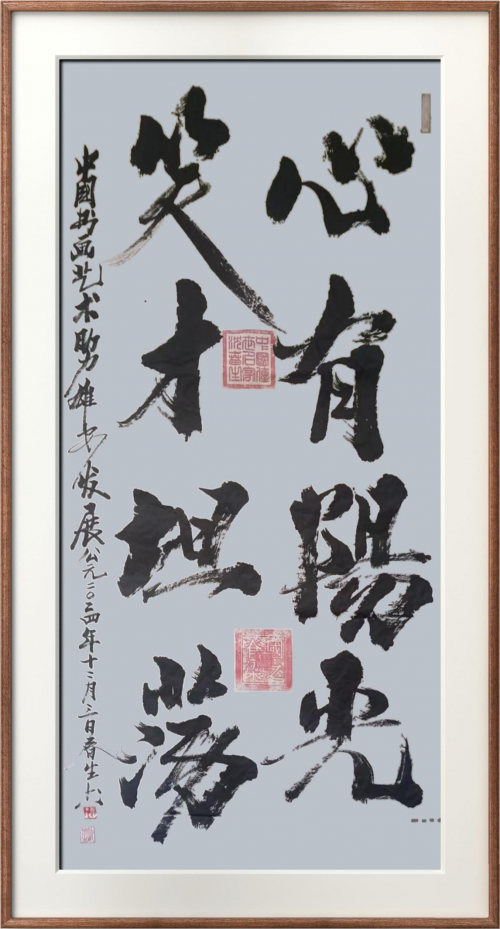 心有陽光
笑才坦荡
中國书画艺术助雄安发展公元二〇二四年十二月三日春生书